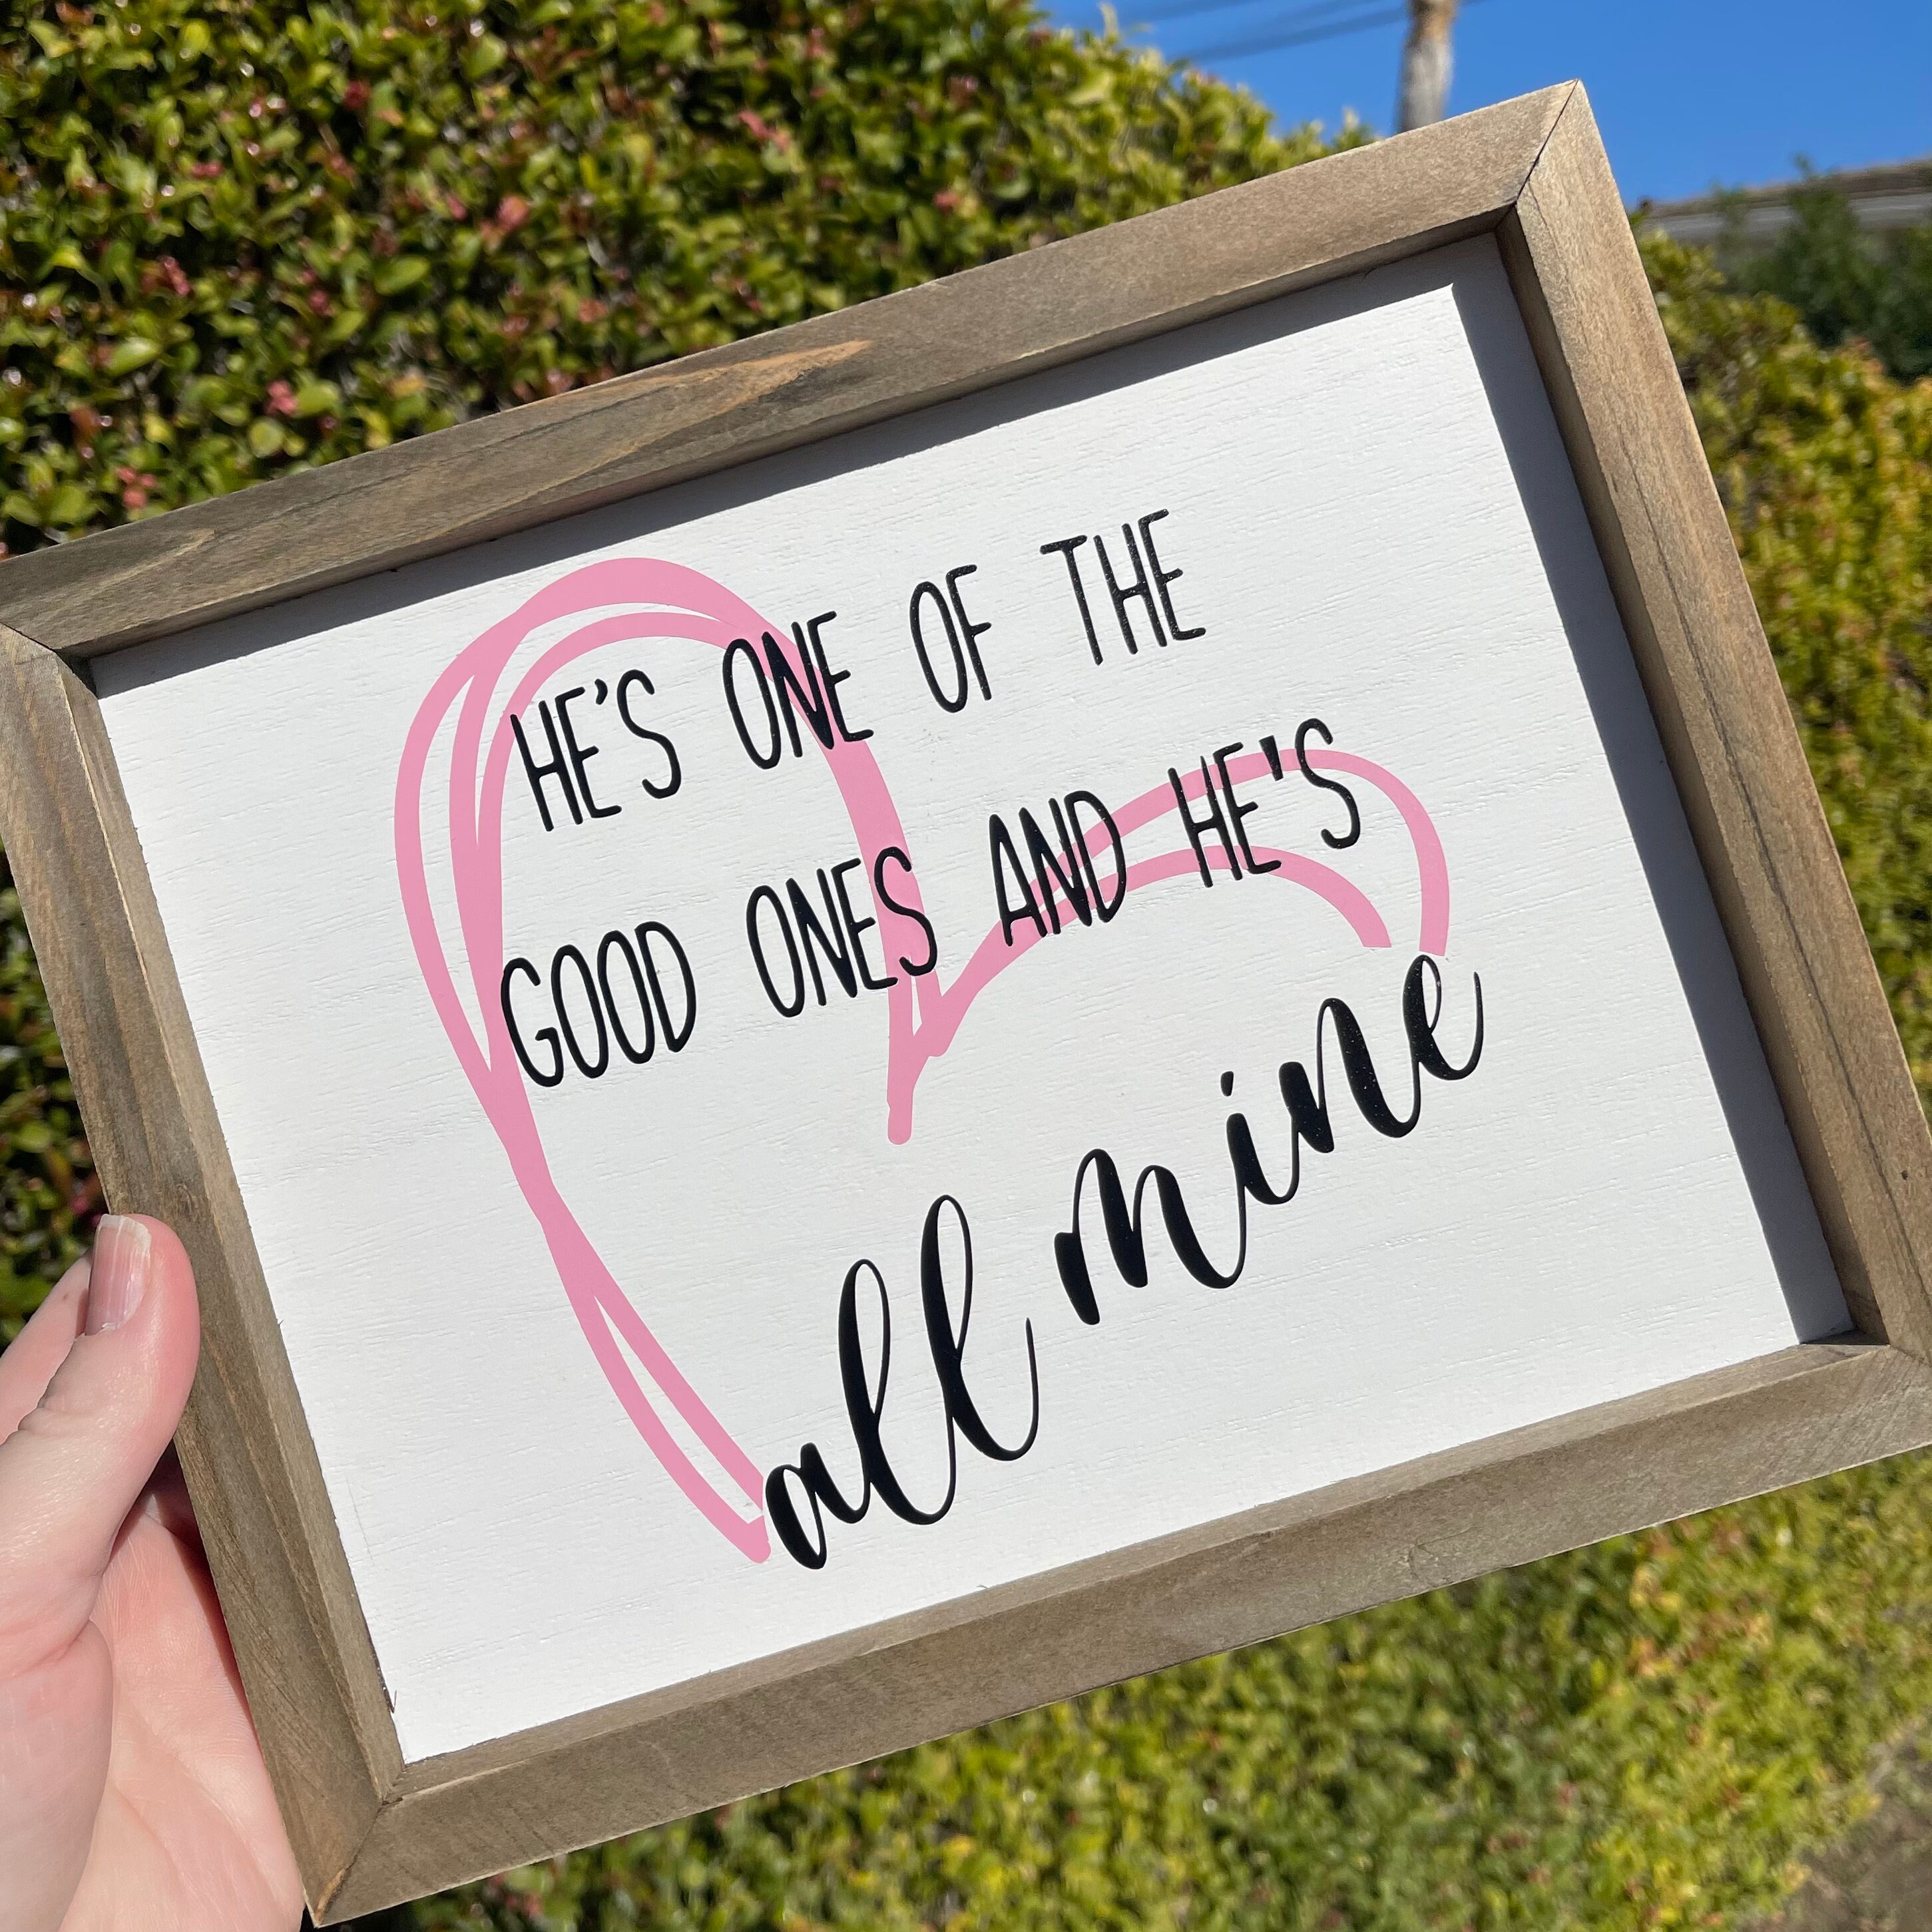 HE'S ONE OF THE
GOOD ONES AND HE'S
all mine